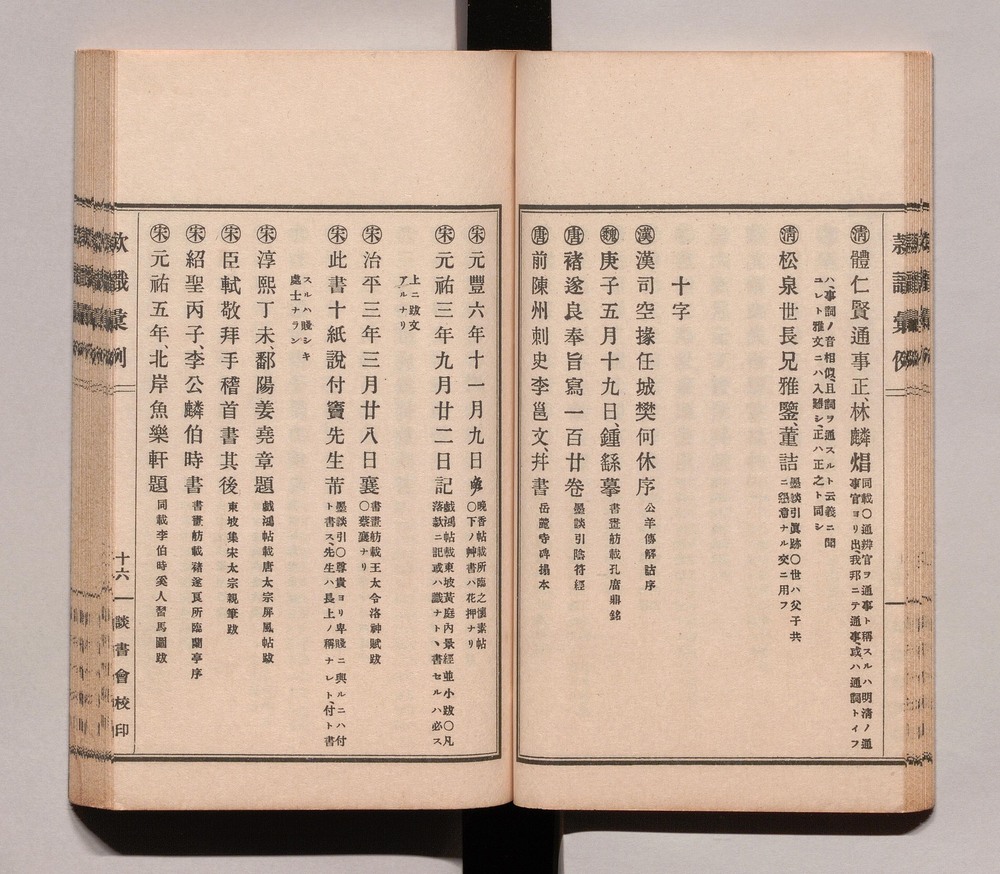 款識彙例
㊥清 體仁賢通事正、林麟焻 同載〇通辨官ヲ通事ト稱スルハ明清ノ通
事官ヨリ出、我邦ニテ通事、或ハ通詞トイフ
ハ、事詞ノ音相似、且詞ヲ通スルト云義ニ閒
ユレド雅文ニハ入難シ、正ハ正之ト同シ
清 松泉世長兄雅鑒、董誥 墨談引眞跡〇世ハ父子共
ニ懇意ナル交ニ用フ
十字
漢 漢司空掾任城樊何休序 公羊傳解詁序
魏 庚子五月十九日、鍾繇摹 書畫舫載孔廟鼎銘
唐 褚遂良奉旨寫一百廿卷 墨談引陰符經
唐 前陳州刺史李邕文、幷書 岳麓寺碑搨本
宋 元豐六年十一月九日 晚香帖載所臨之懷素帖
〇下ノ艸書ハ花押ナリ
宋 元祐三年九月廿二日記 戲鴻帖載東坡黃庭內景經並小跋〇凡
落款ニ記或ハ識ナト、書セルハ必ス
上ニ跋文
アルナリ
宋 治平三年三月廿八日襄 書畫舫載王大令洛神賦跋
〇蔡襄ナリ
宋 此書十紙說付竇先生芾 墨談引〇尊貴ヨリ卑賤ニ與ルニハ付
ト書ス、先生ハ長上ノ稱ナレト、付ト書
スルハ賤シキ
處士ナラン
宋 淳熙丁未鄱陽姜堯章題 戲鴻帖載唐太宗屏風帖跋
宋 臣軾敬拜手稽首書其後 東坡集宋太宗親筆跋
宋 紹聖丙子、李公麟伯時書 書畫舫載褚遂良所臨蘭亭序
宋 元祐五年、北岸魚樂軒題 同載李伯時奚人習馬圖跋
款識彙例
十六
談書會校印